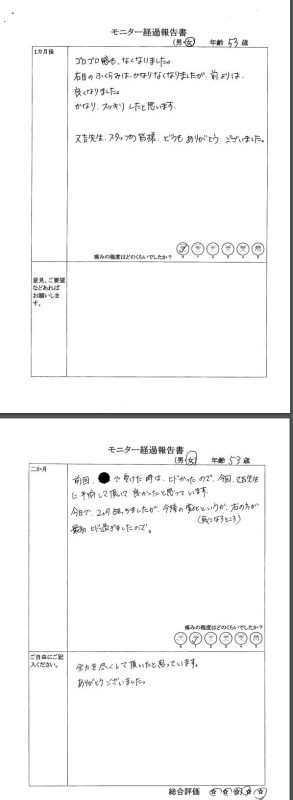 モニター経過報告書
(男・女) 年齢 53 歳
1カ月後
ゴロゴロ感も、なくなりました。
右目のふくらみは、かなりなくなりましたが、前よりは、
良くなりました。
かなり、スッキリしたと思います。
先生、スタッフの皆様、どうもありがとうございました。
痛みの程度はどのくらいでしたか?
意見、ご要望
などあれば
お願いしま
す。
モニター経過報告書
(男・女) 年齢 53 歳
二か月
前回、で受けた時は、ヒドかったので、今回、先生
に手術して頂いて良かったと思っています。
今日で、2ヶ月たちましたが、今後の変化というか、右の方が
(気になるところ)
ヒド過ぎましたので。
痛みの程度はどのくらいでしたか?
ご自由にご記
入ください。
全力を尽くして頂いたと思っています。
ありがとうございました。
総合評価 ☆☆☆☆☆